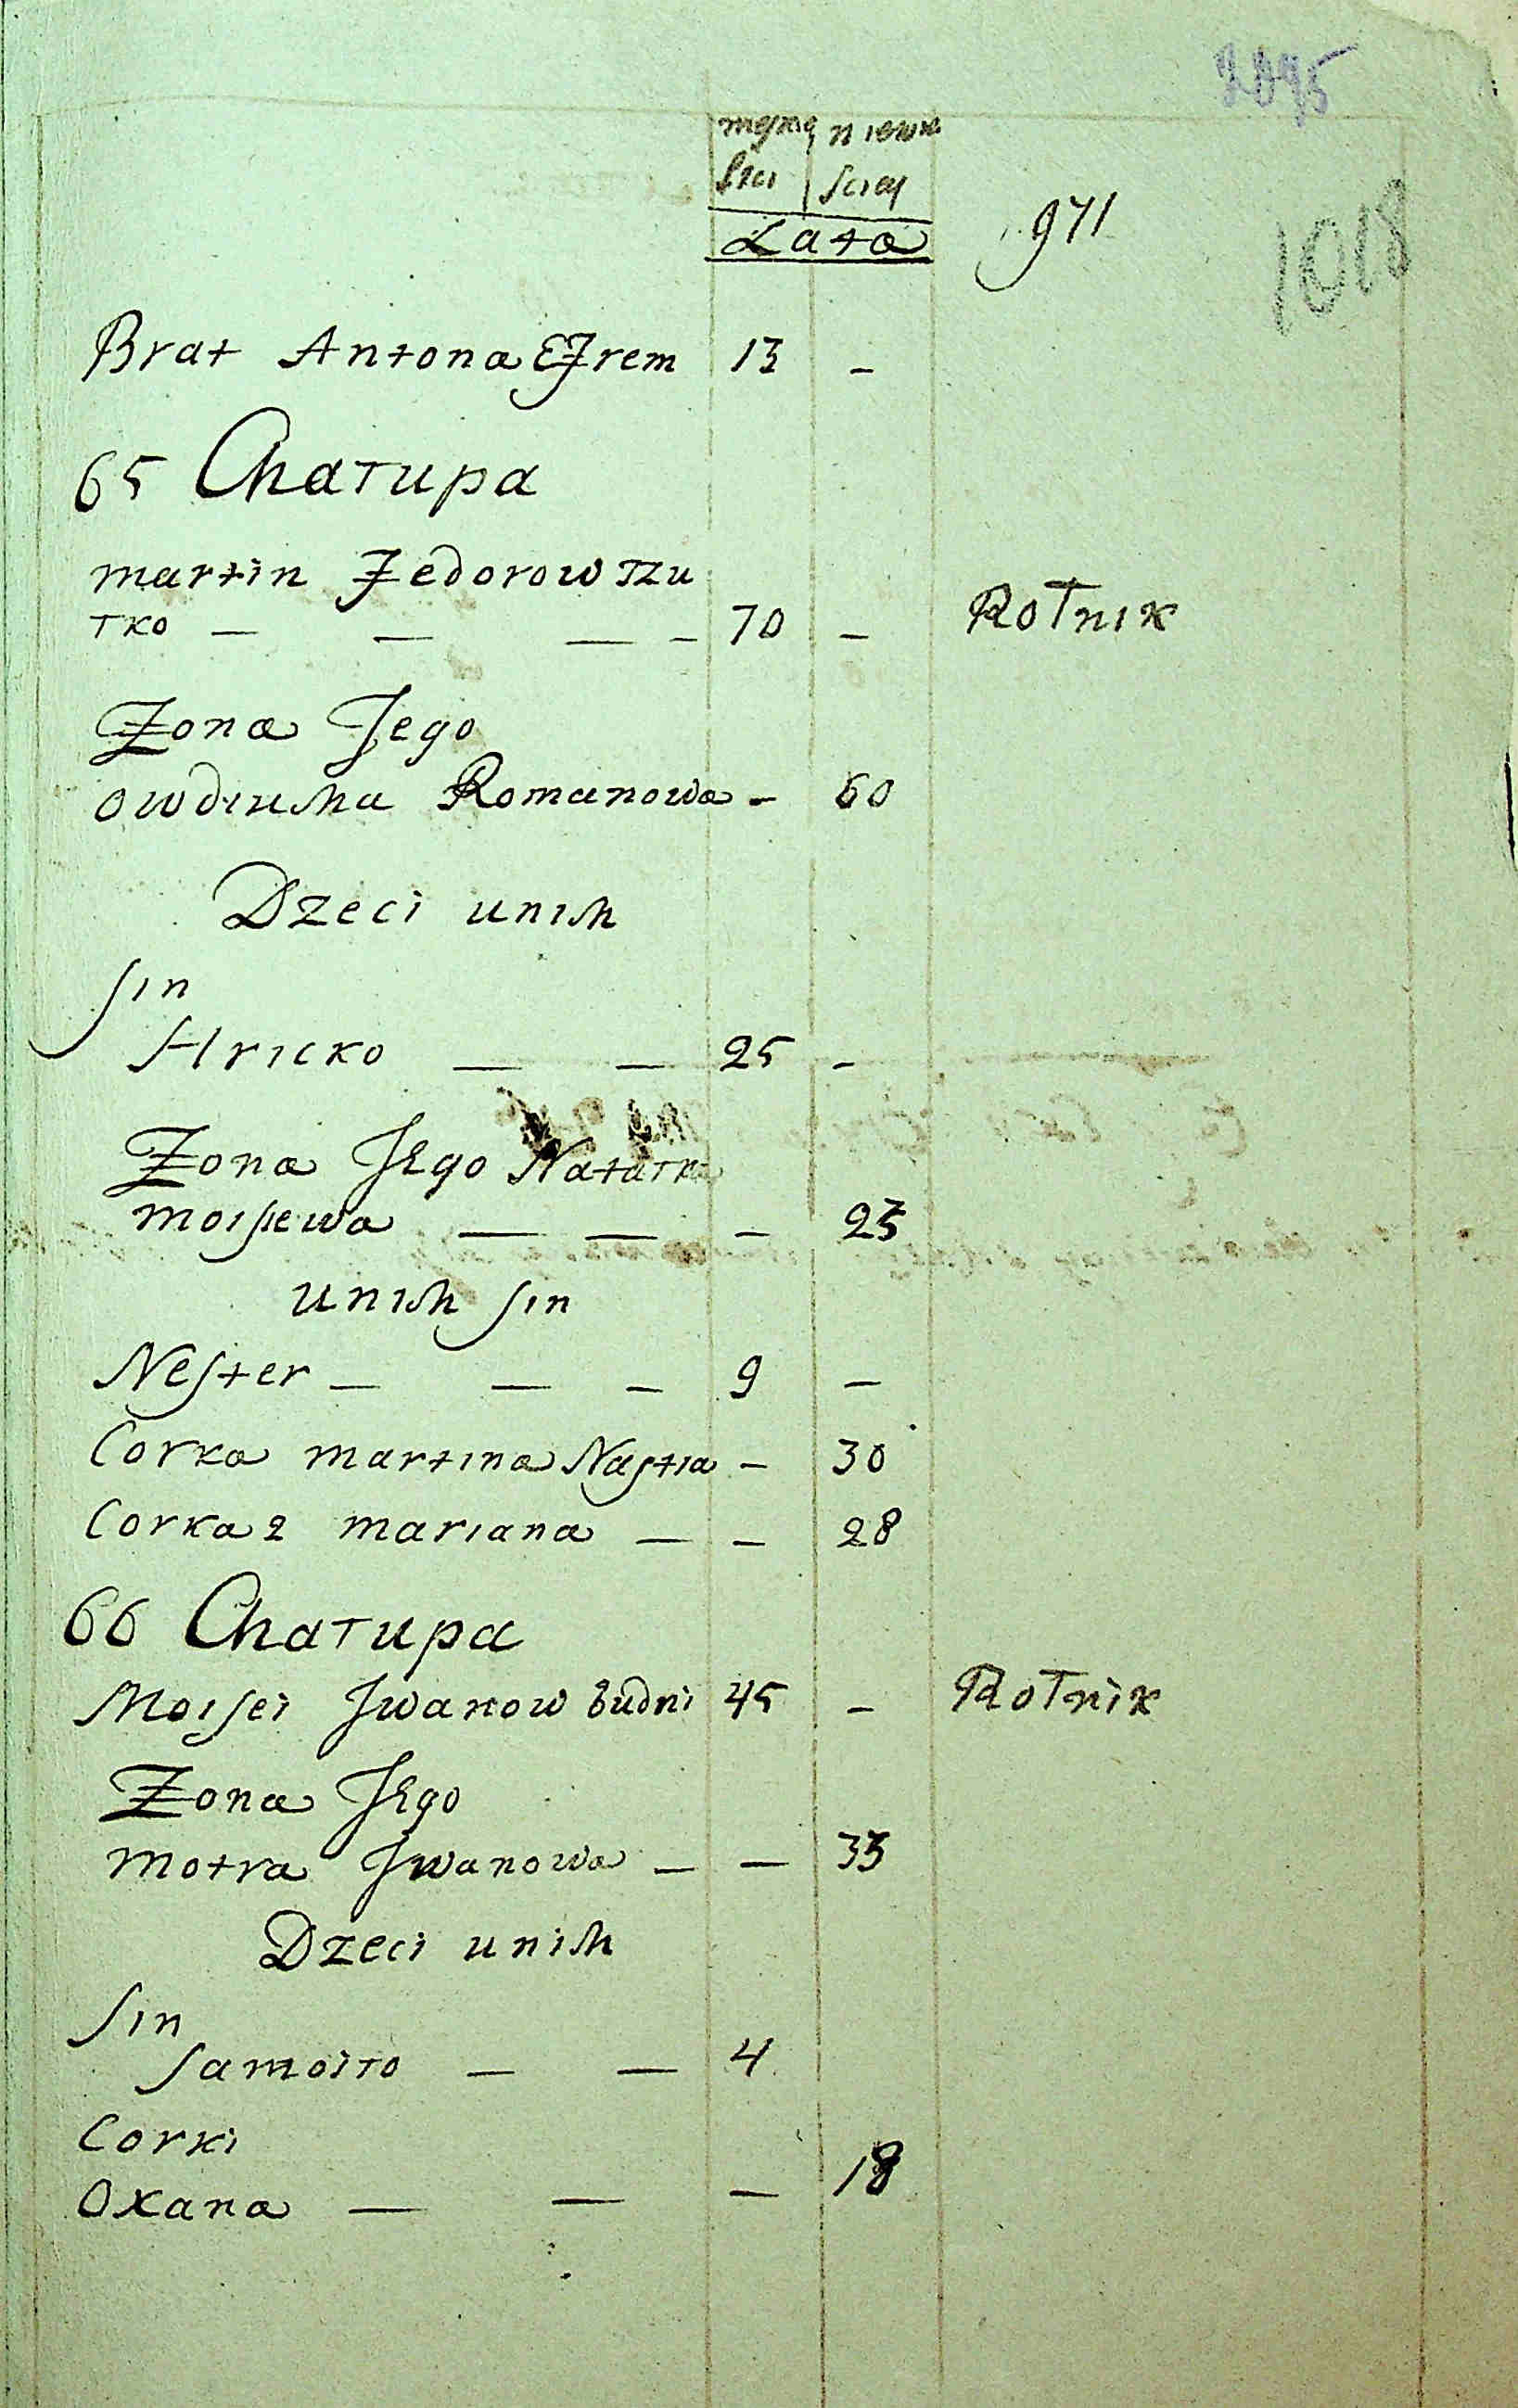 3095
męzkę niewie
ſkei ſciey
Lata 971
1018
Brat Antona Efrem 13 -
65 Chałupa
martin Fedorow Szu
łko — — — - 70 - Rolnik
Zona Jego
owdiucha Romanowa - 60
Dzeci unich
ſin
Hricko — — 25 -
Zona Jego Natałka
moiſiewa — — - 25
unich ſin
Neſter — — - 9 -
Corka martina Naſtia - 30
Corka 2 mariana — - 28
66 Chałupa
Moiſei Jwanow budni 45 - Rolnik
Zona Jego
motra Jwanowa — — 33
Dzeci unich
ſin
ſamoiło — — 4
Corki
Oxana — — — 18